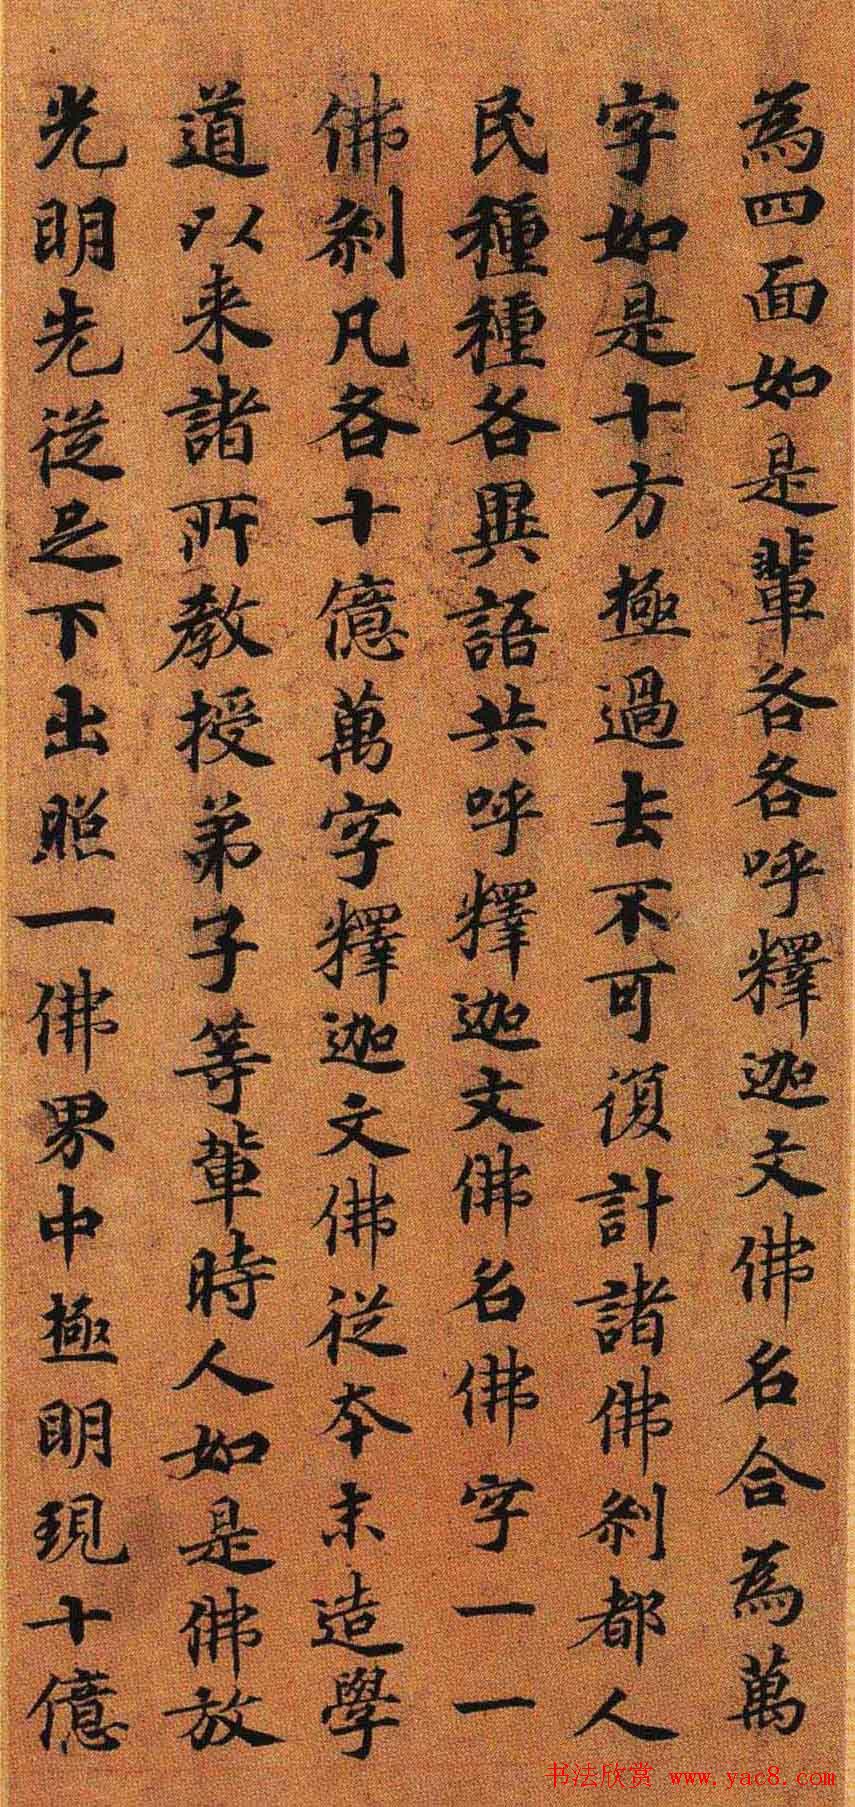 為四面如是輩各各呼釋迦文佛名合為萬
字如是十方極過去不可復計諸佛刹都人
民種種各異語共呼釋迦文佛名佛字一一
佛刹凡各十億萬字釋迦文佛從本未造學
道以来諸所教授弟子等輩時人如是佛放
光明先從足下出照一佛界中極明現十億
书法欣赏 www.yac8.com